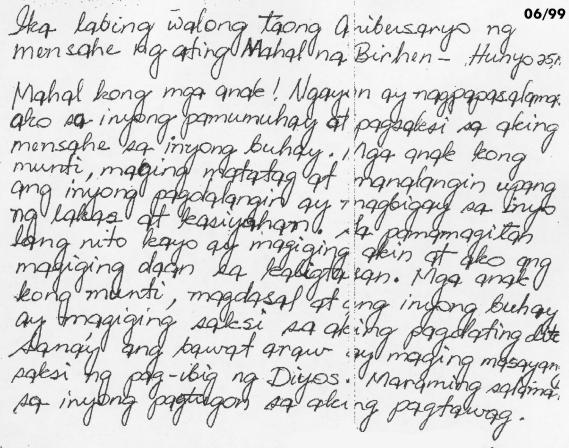 06/99
Ika labing walong taong Anibersaryo ng
mensahe ng ating Mahal na Birhen - Hunyo 25,
Mahal kong mga anak! Ngayon ay nagpapasalamat
ako sa inyong pamumuhay at pagsaksi sa aking
mensahe sa inyong buhay. Mga anak kong
munti, maging matatag at manalangin upang
ang inyong pagdalangin ay magbigay sa inyo
ng lakas at kasiyahan. Sa pamamagitan
lang nito kayo ay magiging akin at ako ang
magiging daan sa kaligtasan. Mga anak
kong munti, magdasal at ang inyong buhay
ay magiging saksi sa aking pagdating dito
Sanay ang bawat araw ay maging masayang
saksi ng pag-ibig ng Diyos. Maraming salamat
sa inyong pagtugon sa aking pagtawag.